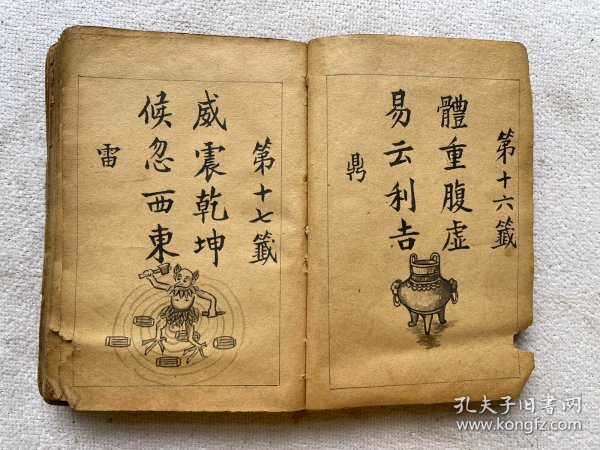 第十六籤
體重腹虛
易云利吉
鼎
第十七籤
威震乾坤
候忽西東
雷
孔夫子旧书网
www.kongfz.com